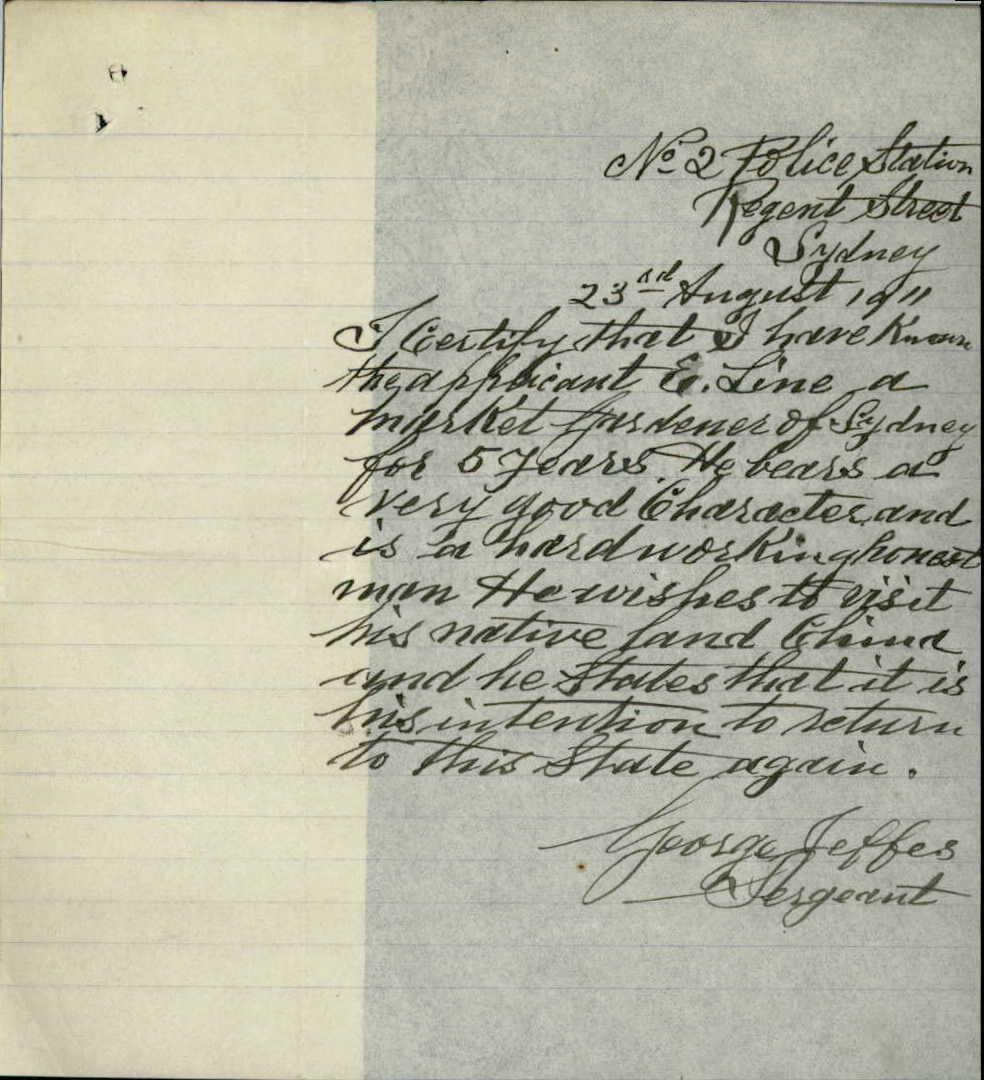 No 2 Police Station
Regent Street
Sydney
23rd August 1911
I Certify that I have Known
the applicant E. Line a
market Gardener of Sydney
for 5 Years. He bears a
very good Character and
is a hard working honest
man He wishes to visit
his native land China
and he States that it is
his intention to return
to this State again.
George Jeffes
Sergeant